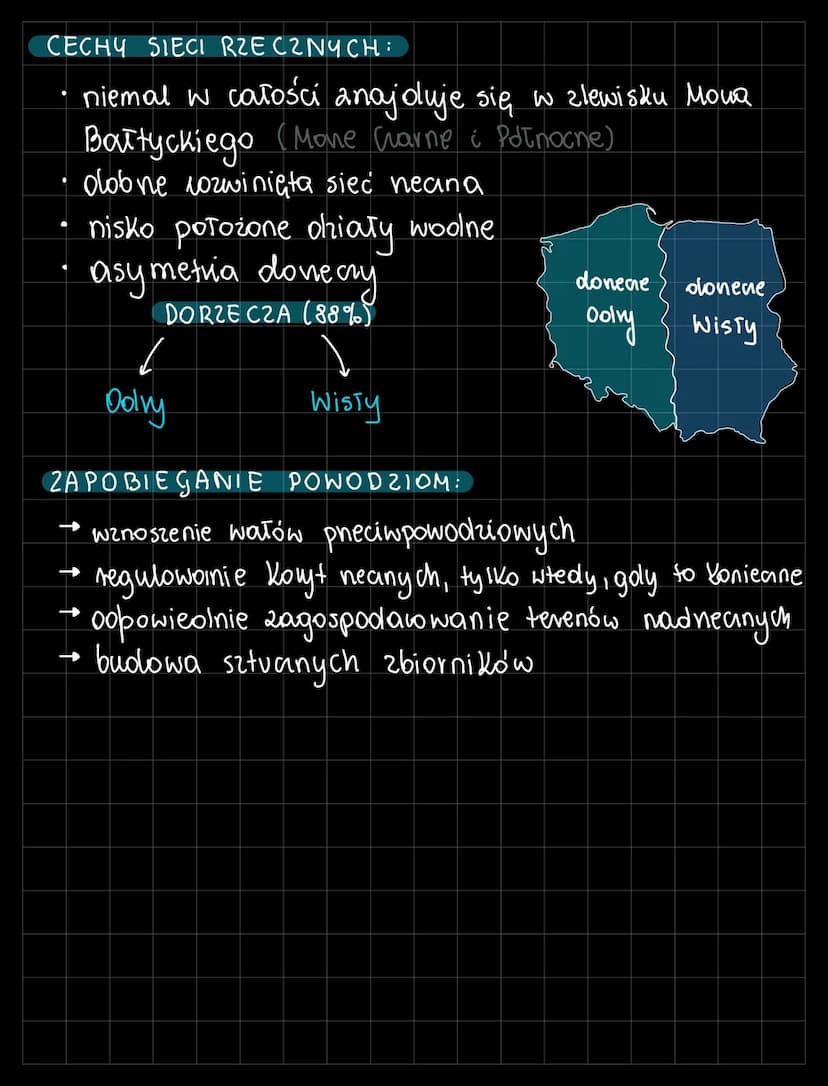 CECHY SIECI RZECZNYCH:
• niemal w całości znajduje się w zlewisku Morza
Bałtyckiego (Morze Czarne i Północne)
• dobrze rozwinięta sieć rzeczna
• nisko położone działy wodne
• asymetria dorzeczy
DORZECZA (88%)
Odry
Wisły
dorzecze
Odry
dorzecze
Wisły
ZAPOBIEGANIE POWODZIOM:
→ wznoszenie wałów przeciwpowodziowych
→ regulowanie koryt rzecznych, tylko wtedy, gdy to konieczne
→ odpowiednie zagospodarowanie terenów nadrzecznych
→ budowa sztucznych zbiorników